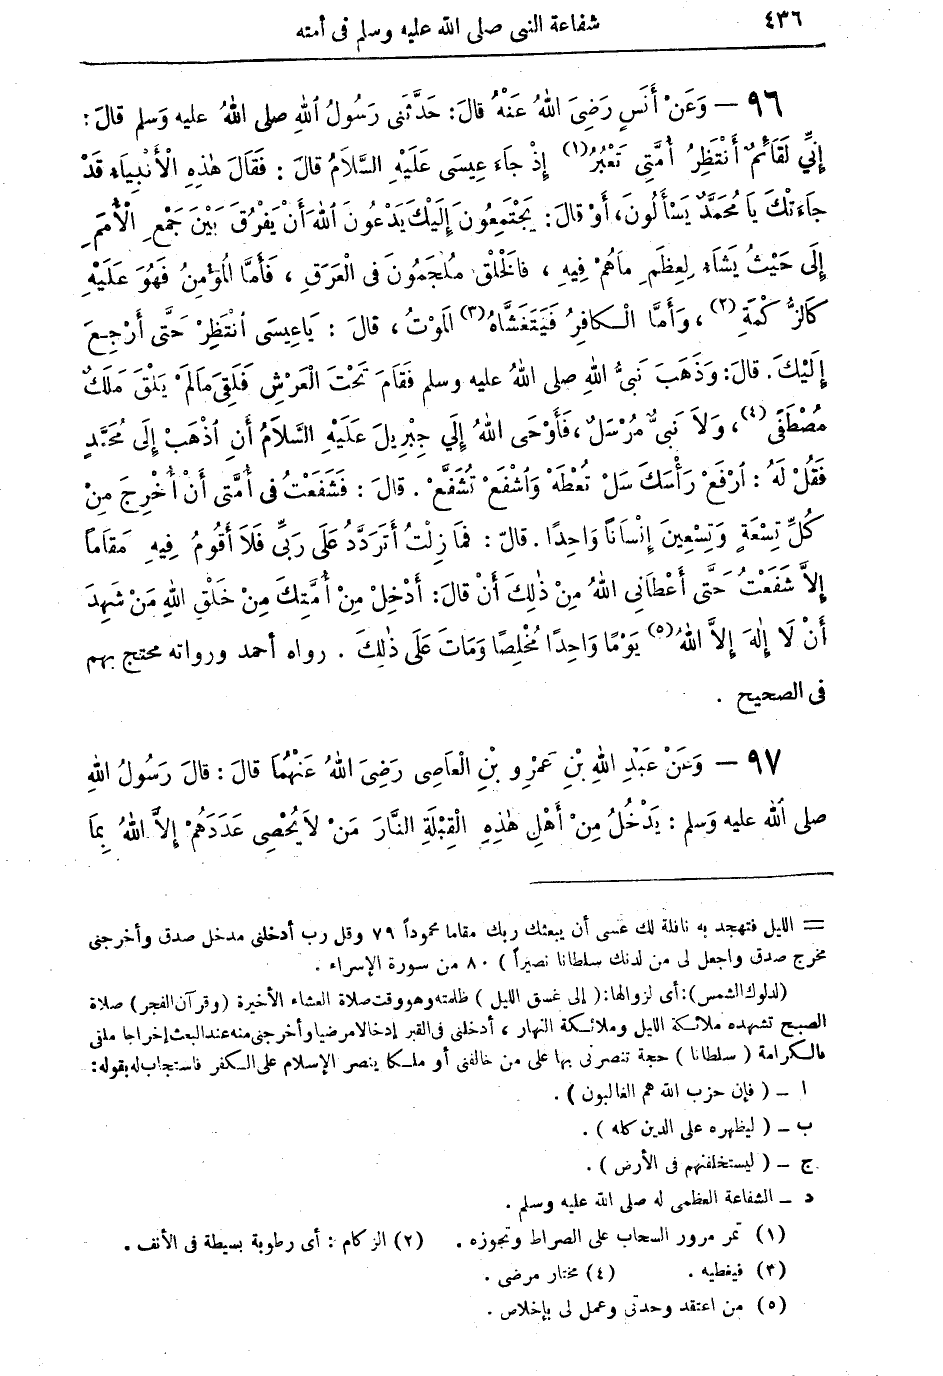 ٤٣٦ شفاعة النبى صلى الله عليه وسلم فى أمته
٩٦ — وَعَنْ أَنَسٍ رَضِىَ اللهُ عَنْهُ قالَ: حَدَّثَنى رَسُولُ اللهِ صلى اللهُ عليه وَسلم قالَ:
إِنِّي لَقَائِمٌ أَنْتَظِرُ أُمَّتِي تَعْبُرُ(١) إِذْ جاءَ عِيسَى عَلَيْهِ السَّلاَمُ قالَ: فَقَالَ هٰذِهِ الْأَنْبِيَاءُ قَدْ
جاءَتْكَ يَا مُحَمَّدُ يَسْأَلُونَ، أَوْ قالَ: يَجْتَمِعُونَ إِلَيْكَ يَدْعُونَ اللهَ أَنْ يَفْرُقَ بَيْنَ جَمْعِ الْأُمَمِ
إِلَى حَيْثُ يَشَاءُ لِعِظَمِ ماهُمْ فِيهِ ، فالْخَلْقُ مُلْجَمُونَ فى الْعَرَقِ ، فَأَمَّا الْمُؤْمِنُ فَهُوَ عَلَيْهِ
كَالزُّ كْمَةِ(٢) ، وَأَمَّا الْكافِرُ فَيَتَغَشَّاهُ(٣) الْمَوْتُ ، قالَ : يَاعِيسَى انْتَظِرْ حَتَّى أَرْجِعَ
إِلَيْكَ. قالَ: وَذَهَبَ نَبىُّ اللهِ صلى اللهُ عليه وسلم فَقَامَ تَحْتَ الْعَرْشِ فَلَقِىَ مَالَمْ يَلْقَ مَلَكٌ
مُصْطَفًى(٤)، وَلاَ نَبىٌّ مُرْسَلٌ ، فَأَوْحَى اللهُ إِلَي جِبْرِيلَ عَلَيْهِ السَّلاَمُ أَنِ اذْهَبْ إِلَى مُحَمَّدٍ
فَقُلْ لَهُ : ارْفَعْ رَأْسَكَ سَلْ تُعْطَهْ وَاشْفَعْ تُشَفَّعْ . قالَ : فَشَفَعْتُ فى أُمَّتى أَنْ أُخْرِجَ مِنْ
كُلِّ تِسْعَةٍ وَتِسْعِينَ إِنْسَانًا وَاحِدًا . قالَ : فَمَا زِلْتُ أَتَرَدَّدُ عَلَى رَبِّى فَلاَ أَقُومُ فِيهِ مَقَامًا
إِلاَّ شَفَعْتُ حَتَّى أَعْطَانِى اللهُ مِنْ ذٰلِكَ أَنْ قالَ: أَدْخِلْ مِنْ أُمَّتِكَ مِنْ خَلْقِ اللهِ مَنْ شَهِدَ
أَنْ لاَ إِلٰهَ إِلاَّ اللهُ(٥) يَوْمًا وَاحِدًا مُخْلِصًا وَمَاتَ عَلَى ذٰلِكَ . رواه أحمد ورواته محتج بهم
فى الصحيح .
٩٧ — وَعَنْ عَبْدِ اللهِ بْنِ عَمْرِو بْنِ الْعَاصِى رَضِىَ اللهُ عَنْهُمَا قالَ : قالَ رَسُولُ اللهِ
صلى اللهُ عليه وَسلم : يَدْخُلُ مِنْ أَهْلِ هٰذِهِ الْقِبْلَةِ النَّارَ مَنْ لاَ يُحْصِى عَدَدَهُمْ إِلاَّ اللهُ بِمَا
= الليل فتهجد به نافلة لك عسى أن يبعثك ربك مقاما محموداً ٧٩ وقل رب أدخلنى مدخل صدق وأخرجنى
مخرج صدق واجعل لى من لدنك سلطانا نصيراً ) ٨٠ من سورة الإسراء .
(لدلوك الشمس): أى لزوالها: (إلى غسق الليل ) ظلمته وهو وقت صلاة العشاء الأخيرة (وقرآن الفجر) صلاة
الصبح تشهده ملائكة الليل وملائكة النهار ، أدخلنى فى القبر إدخالا مرضيا وأخرجنى منه عند البعث إخراجا ملقى
بالكرامة ( سلطانا ) حجة تنصرنى بها على من خالفنى أو ملكا ينصر الإسلام على الكفر فاستجاب له بقوله:
ا — ( فإن حزب الله هم الغالبون ) .
ب — ( ليظهره على الدين كله ) .
ج — ( ليستخلفنهم فى الأرض ) .
د — الشفاعة العظمى له صلى الله عليه وسلم .
(١) تمر مرور السحاب على الصراط وتجوزه . (٢) الزكام : أى رطوبة بسيطة فى الأنف .
(٣) فيغطيه . (٤) مختار مرضى .
(٥) من اعتقد وحدتى وعمل لى بإخلاص .